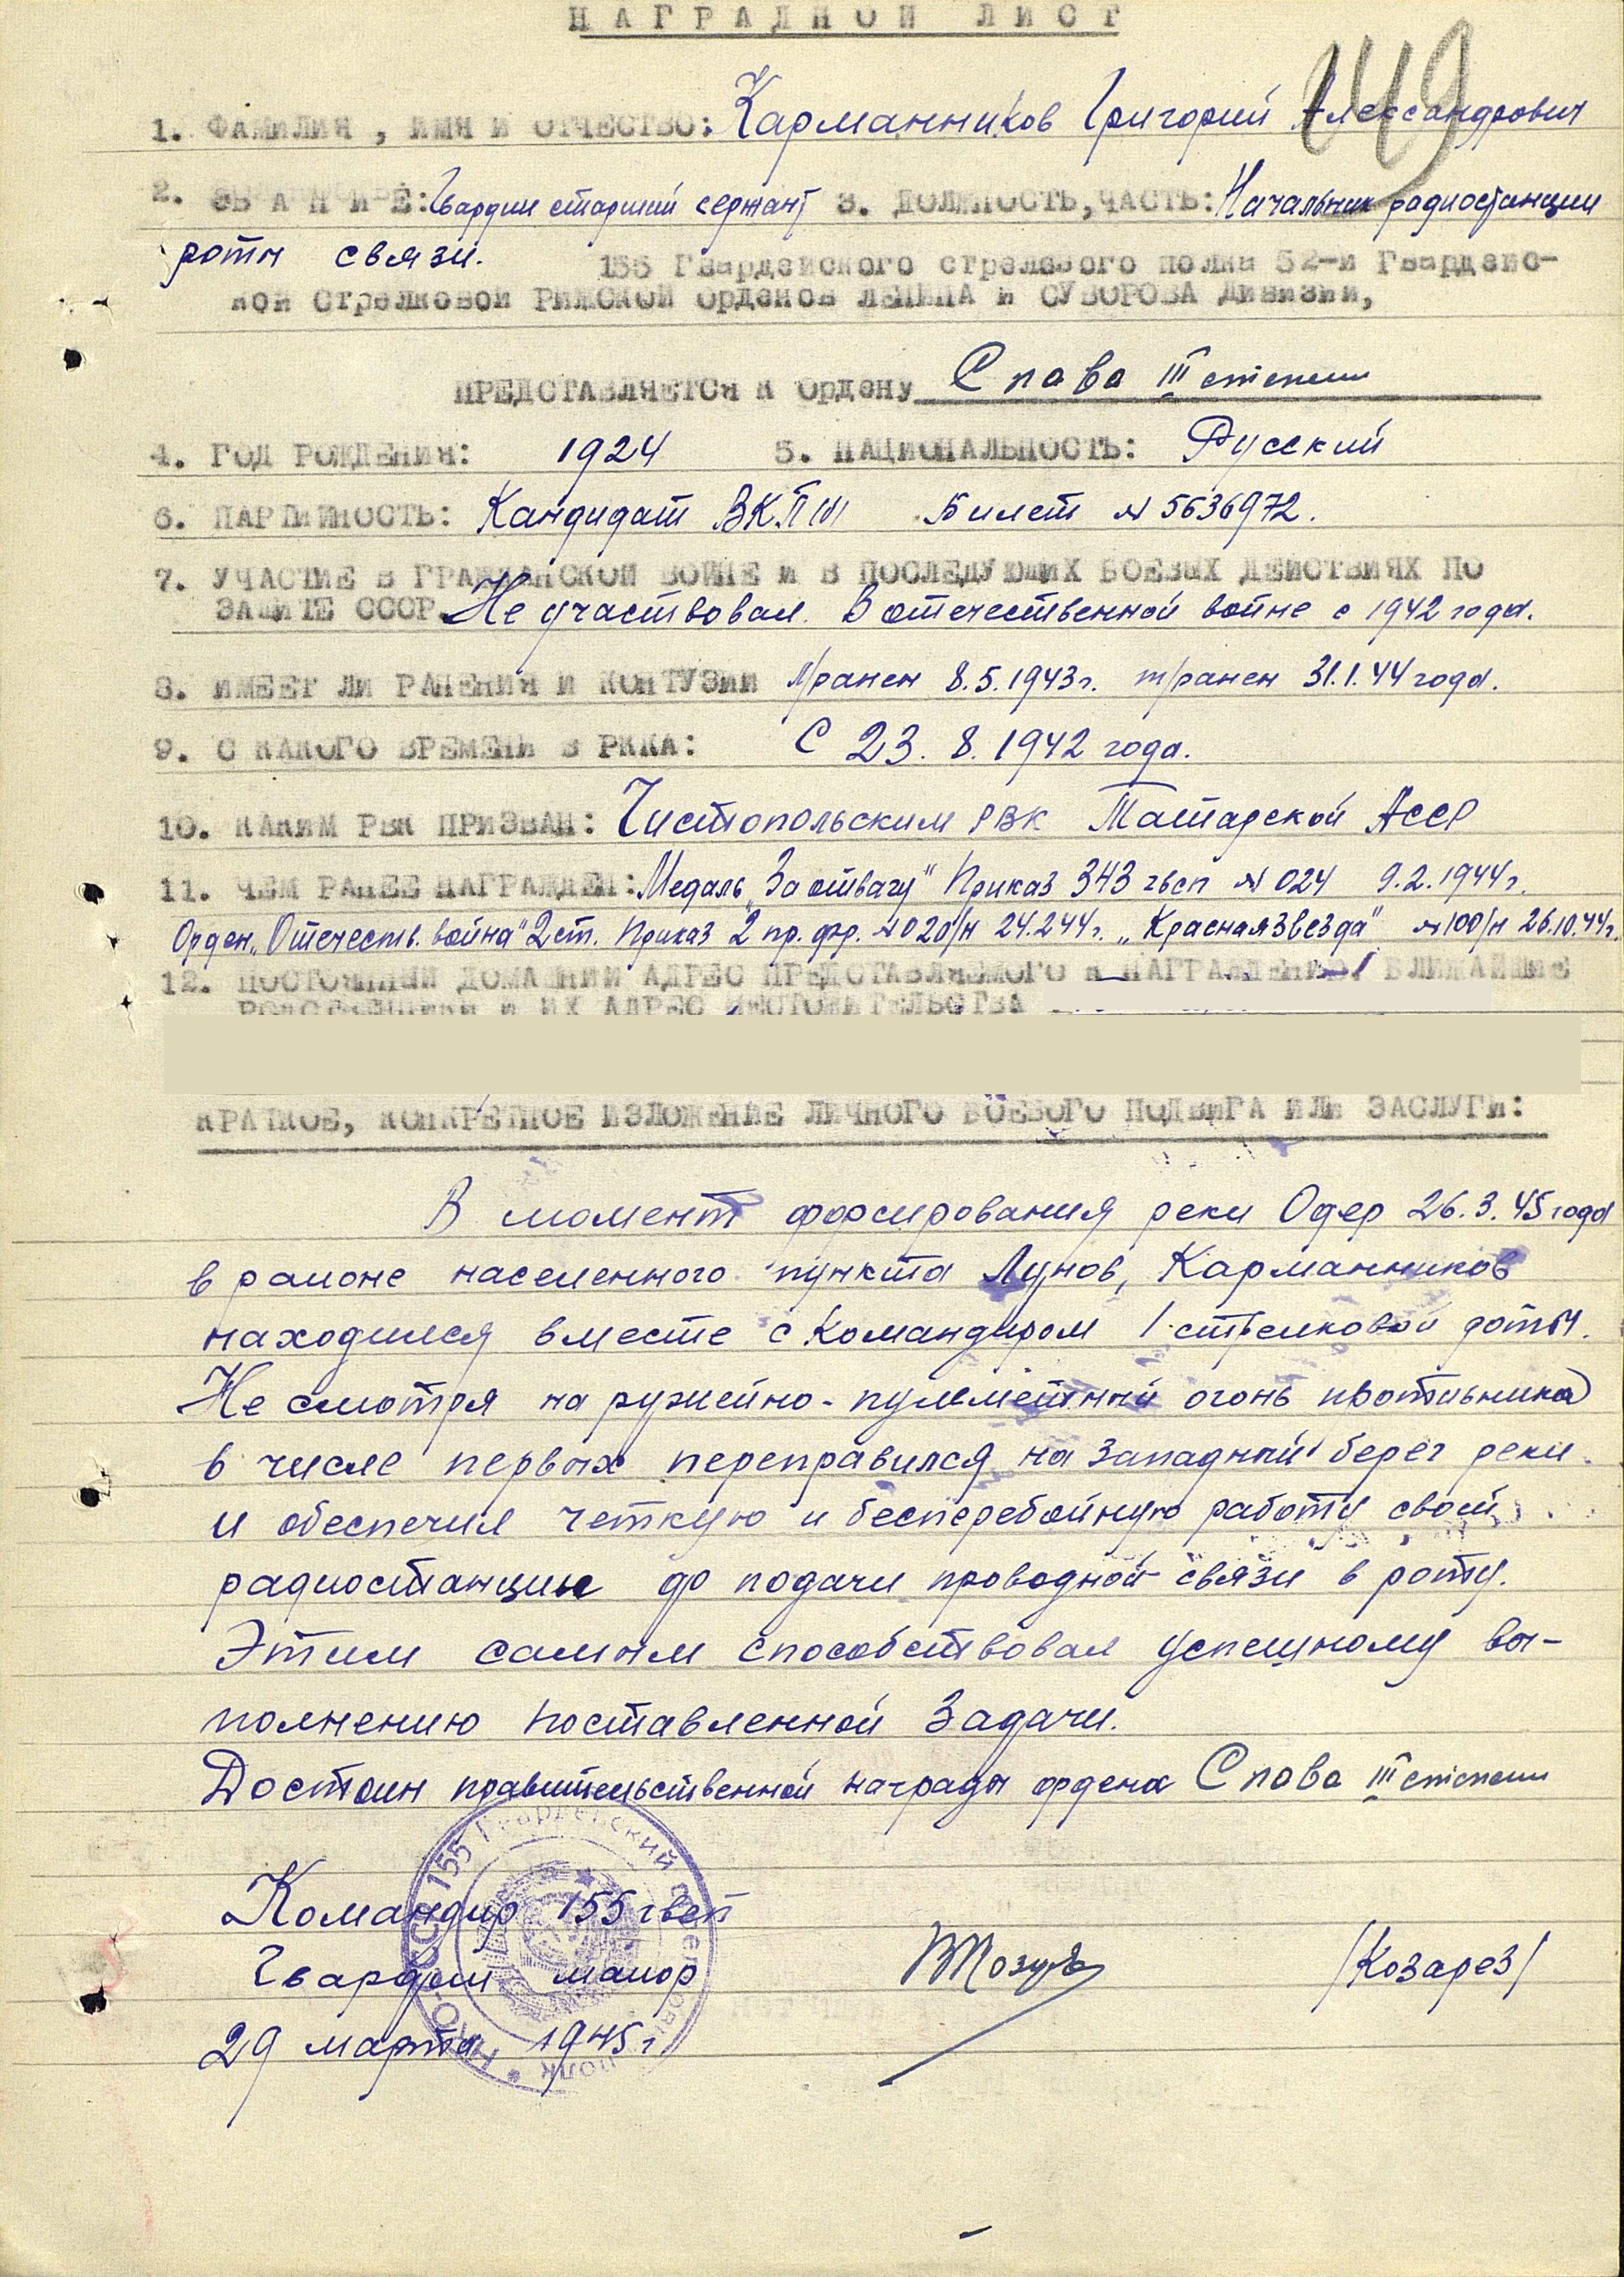 НАГРАДНОЙ ЛИСТ
149
1. ФАМИЛИЯ, ИМЯ И ОТЧЕСТВО: Карманников Григорий Александрович
2. ЗВАНИЕ: Гвардии старший сержант 3. ДОЛЖНОСТЬ, ЧАСТЬ: Начальник радиостанции
роты связи. 155 Гвардейского стрелкового полка 52-й Гвардейс-
кой Стрелковой РИЖСКОЙ орденов ЛЕНИНА и СУВОРОВА дивизии,
ПРЕДСТАВЛЯЕТСЯ к ордену Слава III степени
4. ГОД РОЖДЕНИЯ: 1924 5. НАЦИОНАЛЬНОСТЬ: Русский
6. ПАРТИЙНОСТЬ: Кандидат ВКП(б) Билет № 5636972.
7. УЧАСТИЕ В ГРАЖДАНСКОЙ ВОЙНЕ И В ПОСЛЕДУЮЩИХ БОЕВЫХ ДЕЙСТВИЯХ ПО
ЗАЩИТЕ СССР. Не участвовал. В отечественной войне с 1942 года.
8. ИМЕЕТ ЛИ РАНЕНИЯ И КОНТУЗИИ л/ранен 8.5.1943г. т/ранен 31.1.44 года.
9. С КАКОГО ВРЕМЕНИ В РККА: С 23. 8. 1942 года.
10. КАКИМ РВК ПРИЗВАН: Чистопольским РВК Татарской АССР
11. ЧЕМ РАНЕЕ НАГРАЖДЕН: Медаль „За отвагу" Приказ 343 гвсп № 024 9.2.1944г.
Орден „Отечеств. война" 2 ст. Приказ 2 пр. фр. № 020/н 24.2.44г. „Красная звезда" № 100/н 26.10.44г.
12. ПОСТОЯННЫЙ ДОМАШНИЙ АДРЕС ПРЕДСТАВЛЯЕМОГО К НАГРАЖДЕНИЮ, БЛИЖАЙШИЕ
РОДСТВЕННИКИ И ИХ АДРЕС МЕСТОЖИТЕЛЬСТВА
КРАТКОЕ, КОНКРЕТНОЕ ИЗЛОЖЕНИЕ ЛИЧНОГО БОЕВОГО ПОДВИГА ИЛИ ЗАСЛУГИ:
В момент форсирования реки Одер 26.3.45 года
в районе населенного пункта Лунов, Карманников
находился вместе с Командиром 1 стрелковой роты.
Не смотря на ружейно-пулеметный огонь противника
в числе первых переправился на западный берег реки
и обеспечил четкую и бесперебойную работу своей
радиостанции до подачи проводной связи в роту.
Этим самым способствовал успешному вы-
полнению поставленной задачи.
Достоин правительственной награды ордена Слава III степени
Командир 155 гвсп
Гвардии майор /Козарез/
29 марта 1945г.
НКО-СССР 155 Гвардейский Стрелковый полк